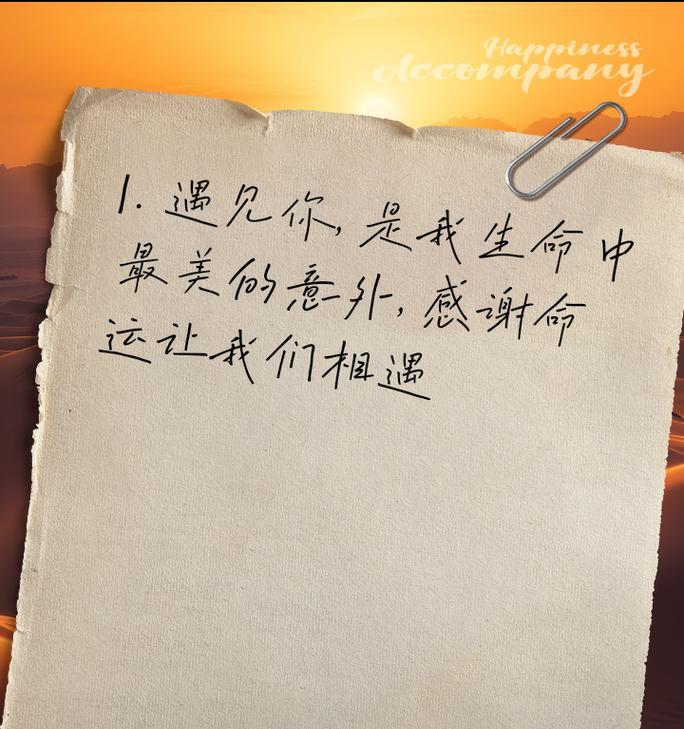 Happiness
Accompany
1. 遇见你, 是我生命中
最美的意外, 感谢命
运让我们相遇